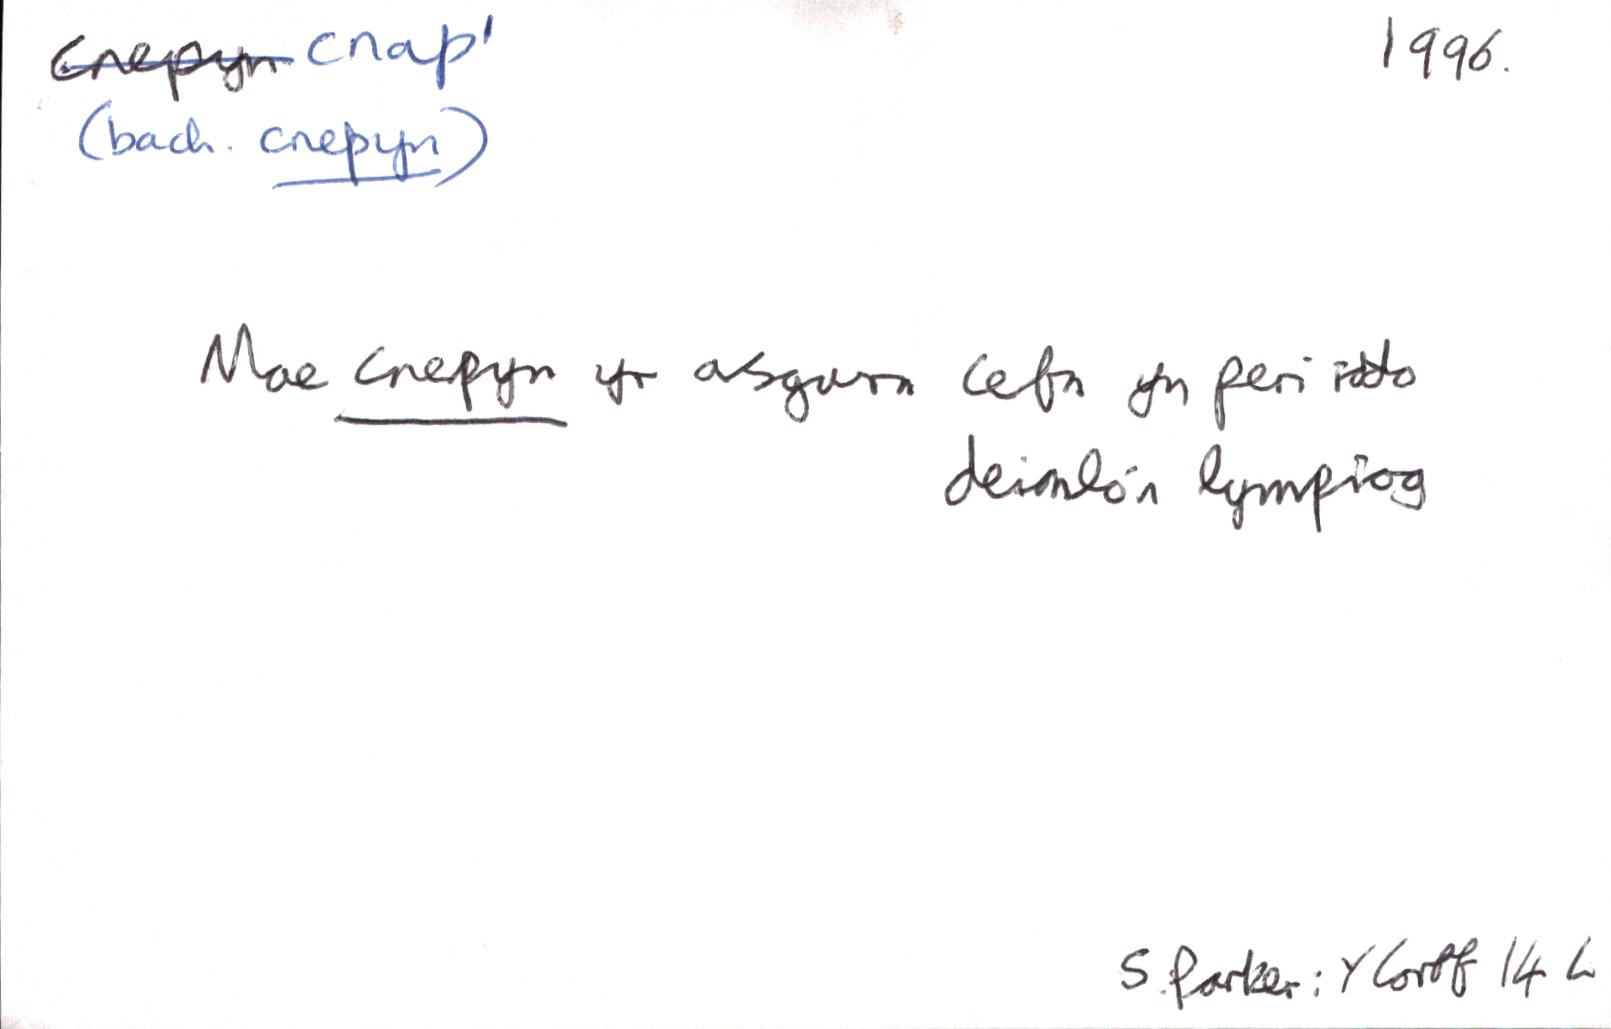 cnepyn cnap¹ 1996.
(bach. cnepyn)
Mae cnepyn yr asgwrn cefn yn peri iddo
deimlo'n lympiog
S. Parker: Y Corff 14 L